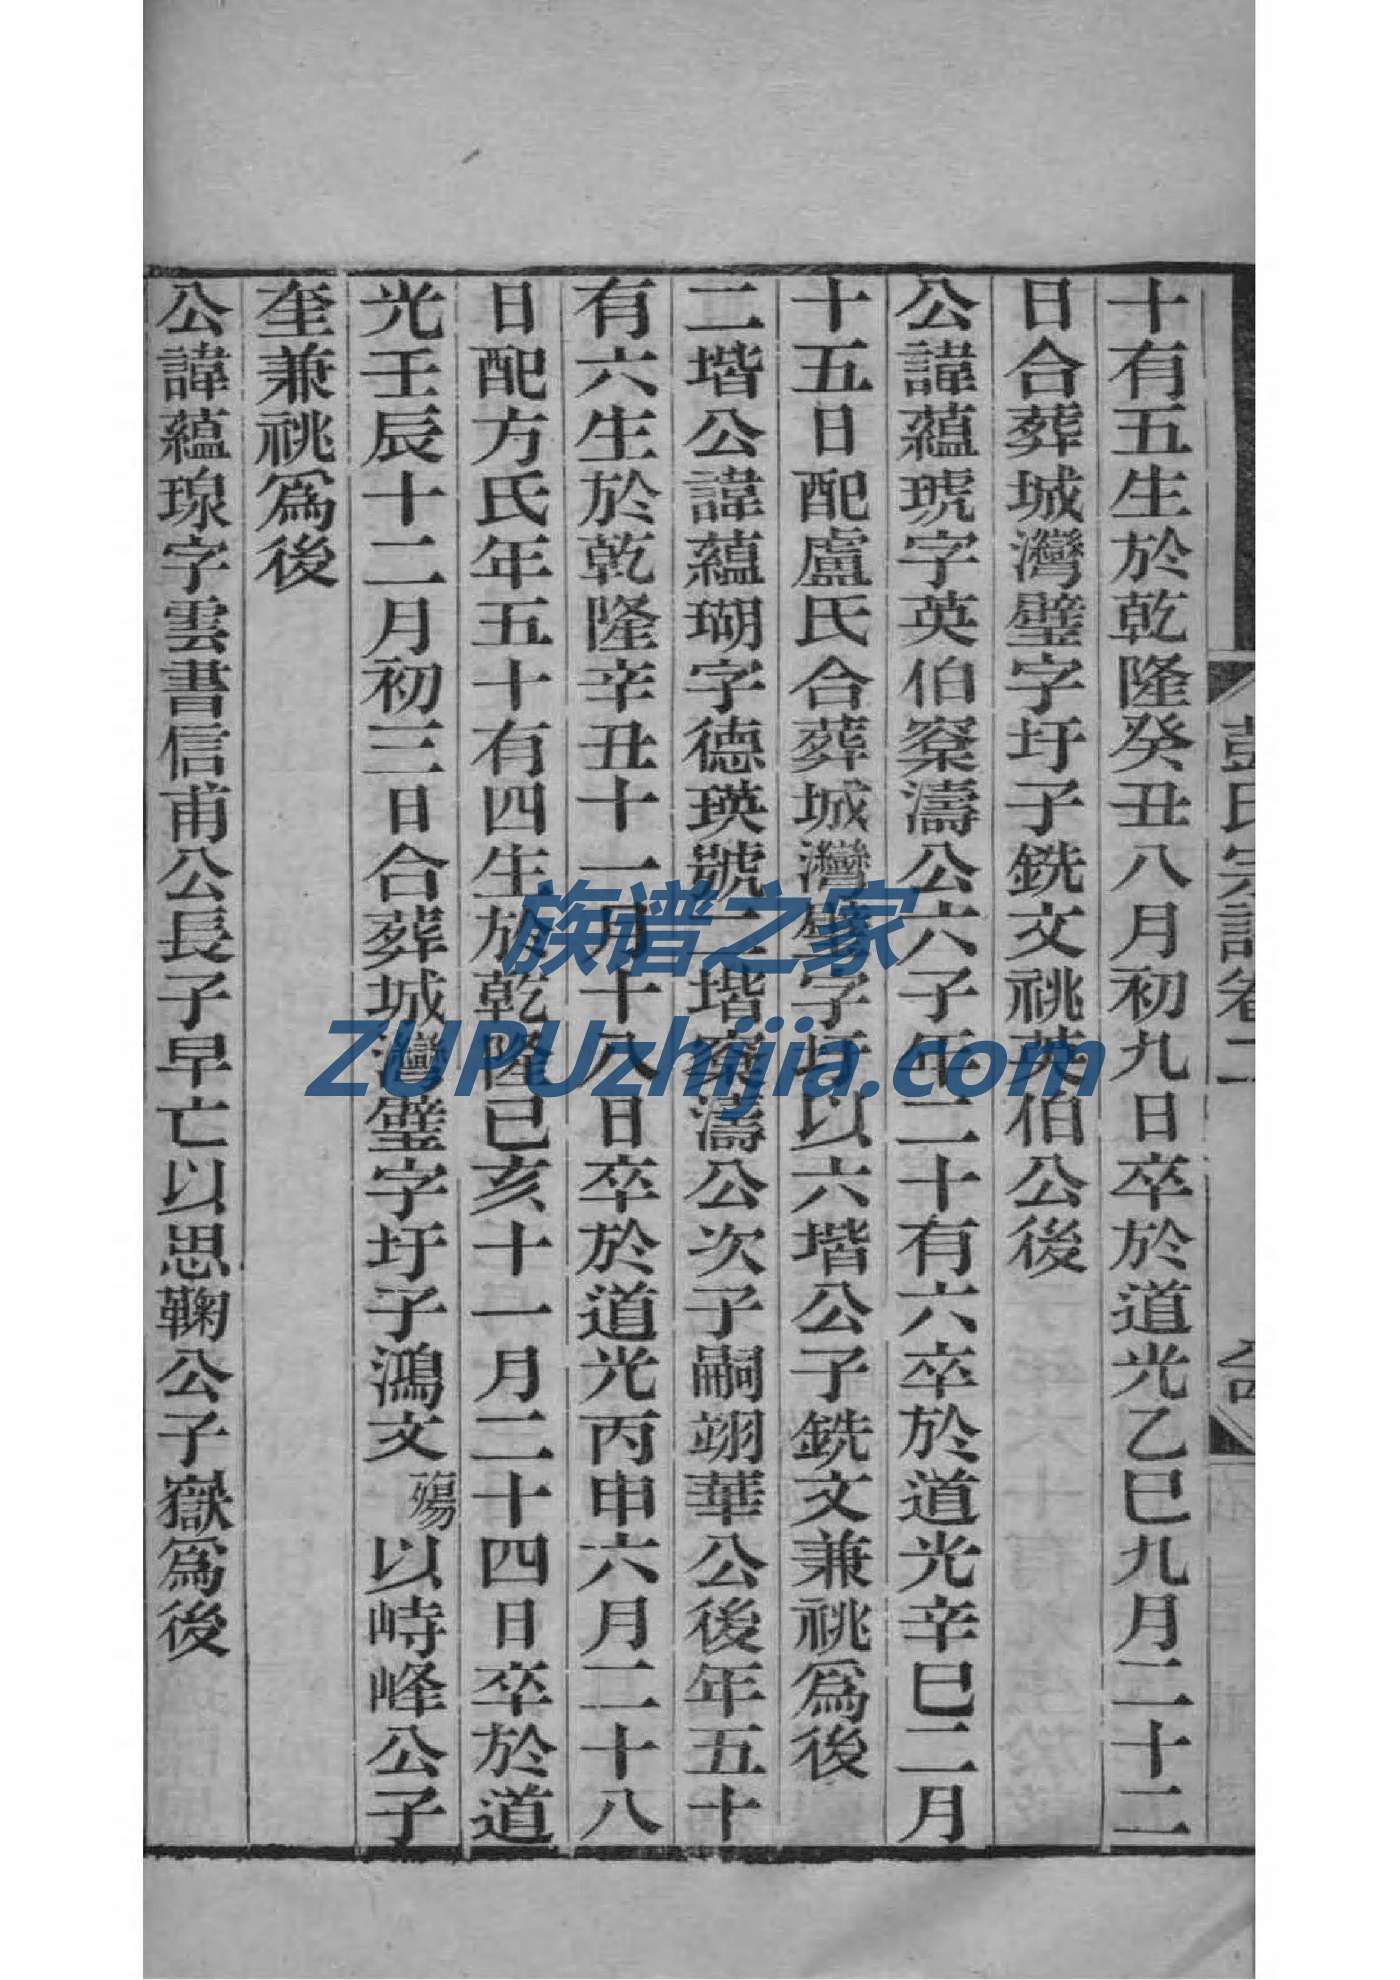 彭氏宗譜卷二
十有五生於乾隆癸丑八月初九日卒於道光乙巳九月二十二
日合葬城灣璧字圩子銑文祧英伯公後
公諱蘊琥字英伯寀濤公六子年二十有六卒於道光辛巳二月
十五日配盧氏合葬城灣璧字圩以六堦公子銑文兼祧爲後
二堦公諱蘊瑚字德瑛號二堦寀濤公次子嗣翊華公後年五十
有六生於乾隆辛丑十一月十八日卒於道光丙申六月二十八
日配方氏年五十有四生於乾隆己亥十一月二十四日卒於道
光壬辰十二月初三日合葬城灣璧字圩子鴻文殤以峙峰公子
奎兼祧爲後
公諱蘊琭字雲書信甫公長子早亡以思鞠公子嶽爲後
族谱之家
ZUPUzhijia.com